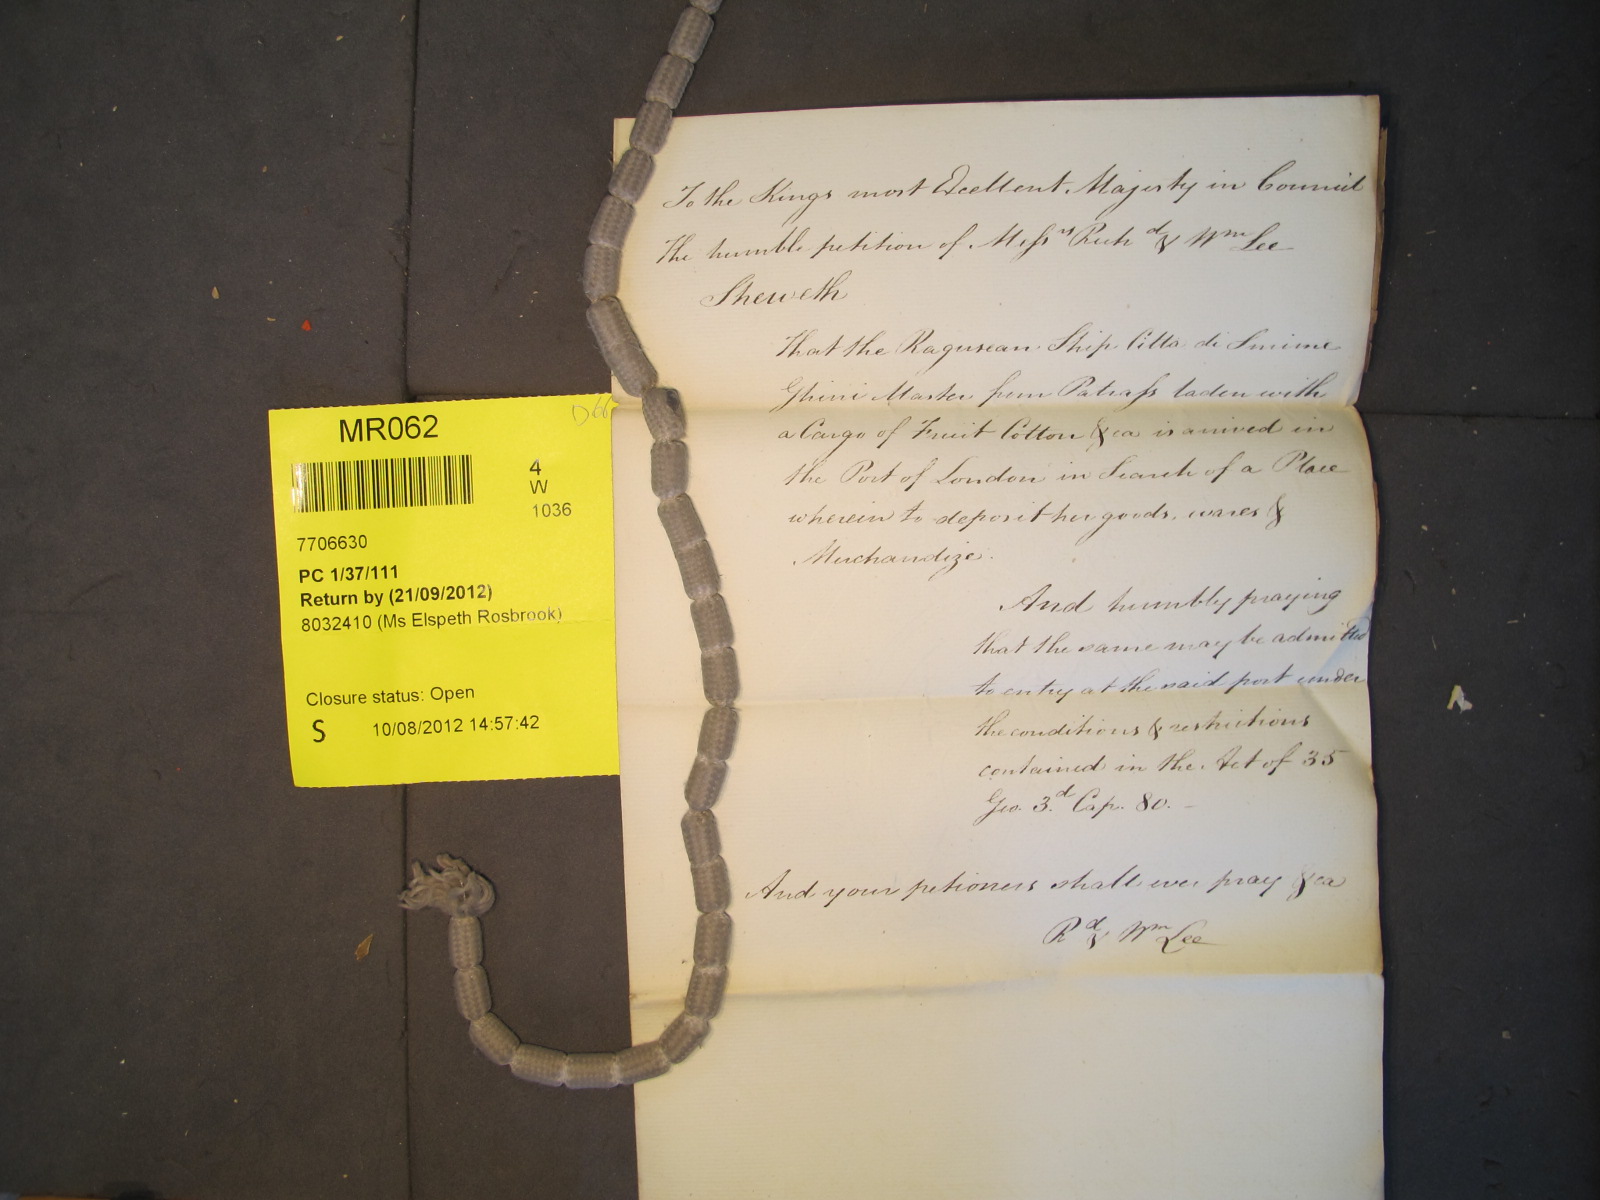 MR062
4
W
1036
7706630
PC 1/37/111
Return by (21/09/2012)
8032410 (Ms Elspeth Rosbrook)
Closure status: Open
S 10/08/2012 14:57:42
D66
To the Kings most Excellent Majesty in Council
The humble petition of Messrs Richd & Wm Lee
Sheweth
That the Ragusean Ship Citta di Smirne
Ghini Master from Patrass laden with
a Cargo of Fruit Cotton &ca is arrived in
the Port of London in Search of a Place
wherein to deposit her goods, wares &
Merchandize.
And humbly praying
that the same may be admitted
to entry at the said port under
the conditions & restrictions
contained in the Act of 35
Geo. 3.d Cap. 80. -
And your petioners shall ever pray &ca
Rd & Wm Lee